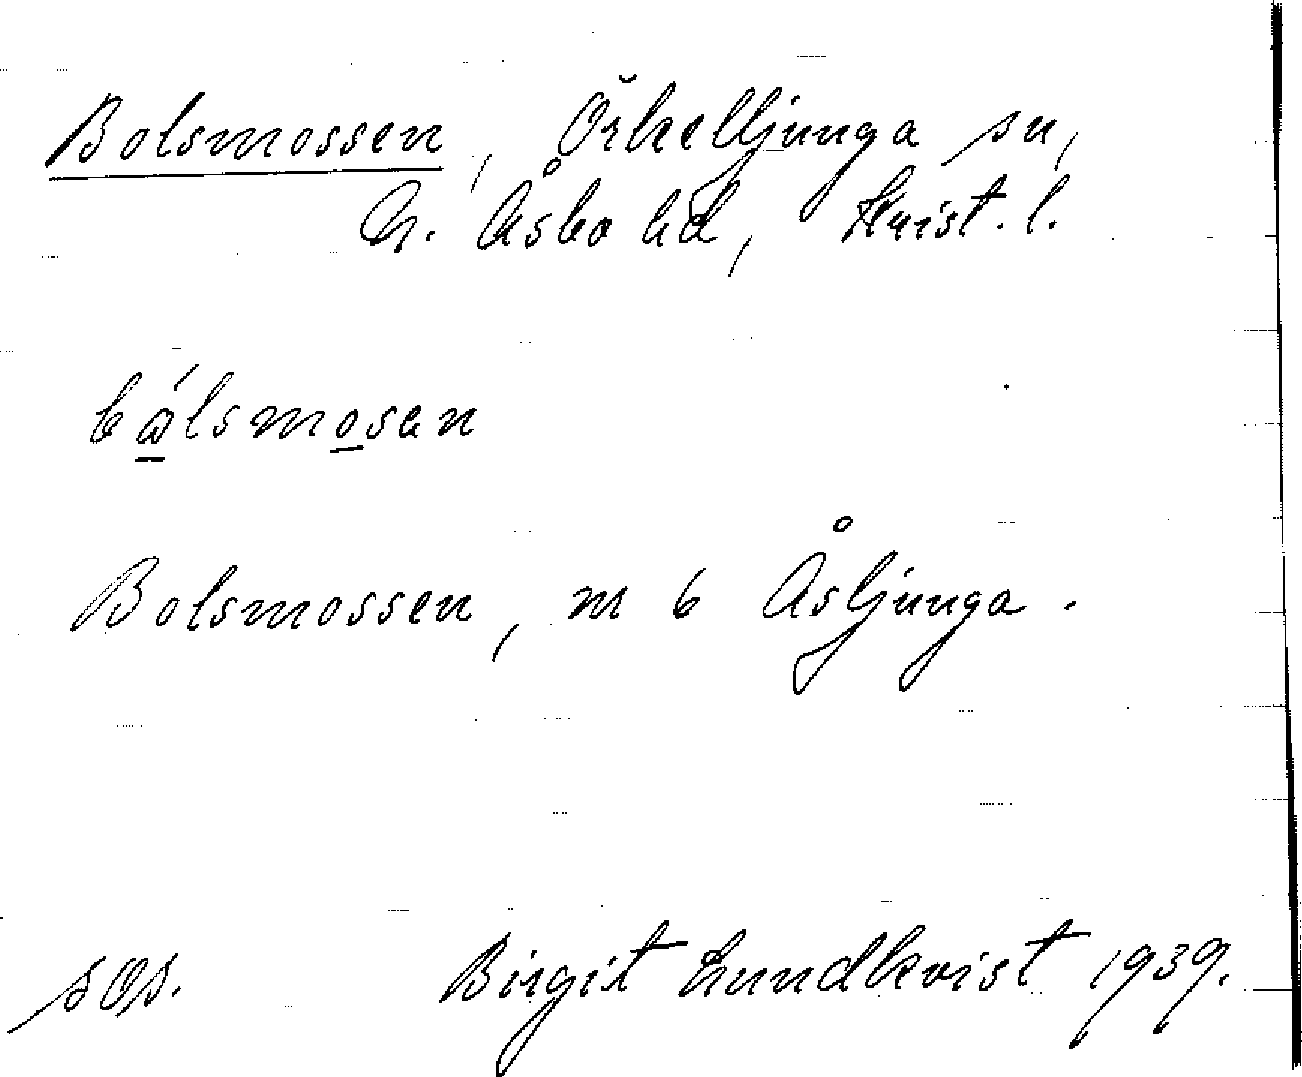 Bolsmossen, Örkelljunga sn,
N. Åsbo hd, Krist. l.
bålsmosen
Bolsmossen, m 6 Åsljunga.
sOs. Birgit Lundkvist 1939.